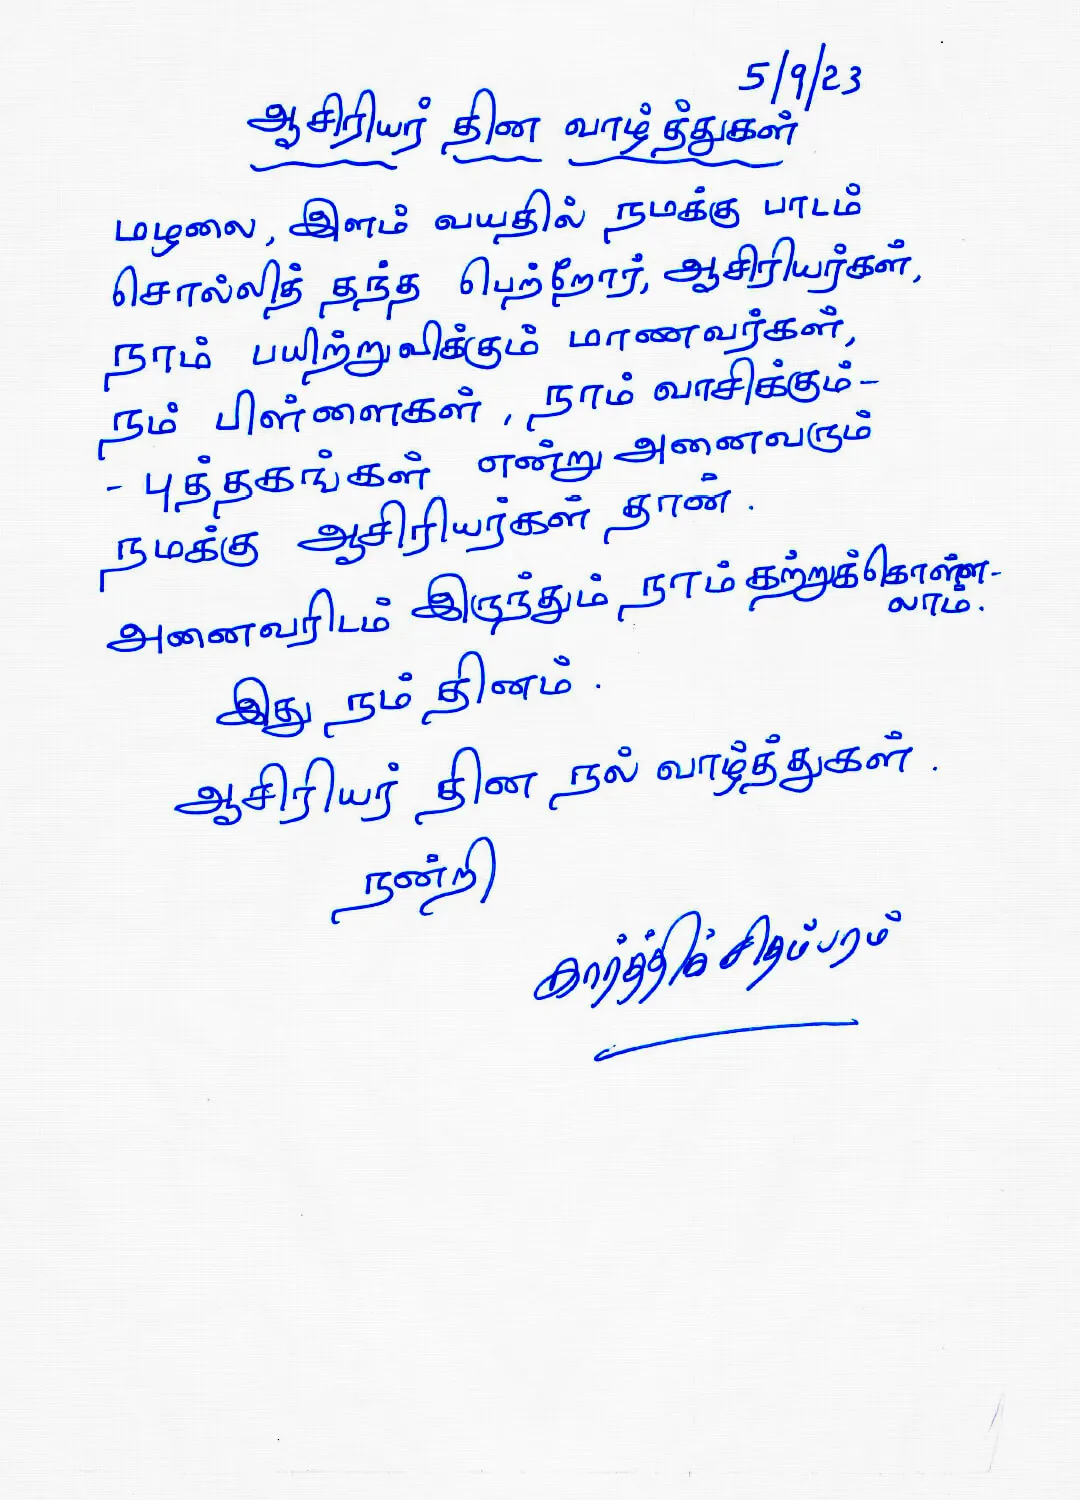 5/9/23
ஆசிரியர் தின வாழ்த்துகள்
மழலை, இளம் வயதில் நமக்கு பாடம்
சொல்லித் தந்த பெற்றோர், ஆசிரியர்கள்,
நாம் பயிற்றுவிக்கும் மாணவர்கள்,
நம் பிள்ளைகள், நாம் வாசிக்கும்-
- புத்தகங்கள் என்று அனைவரும்
நமக்கு ஆசிரியர்கள் தான்.
அனைவரிடம் இருந்தும் நாம் கற்றுக்கொள்ள-
லாம்.
இது நம் தினம்.
ஆசிரியர் தின நல் வாழ்த்துகள்.
நன்றி
கார்த்திக் சிதம்பரம்